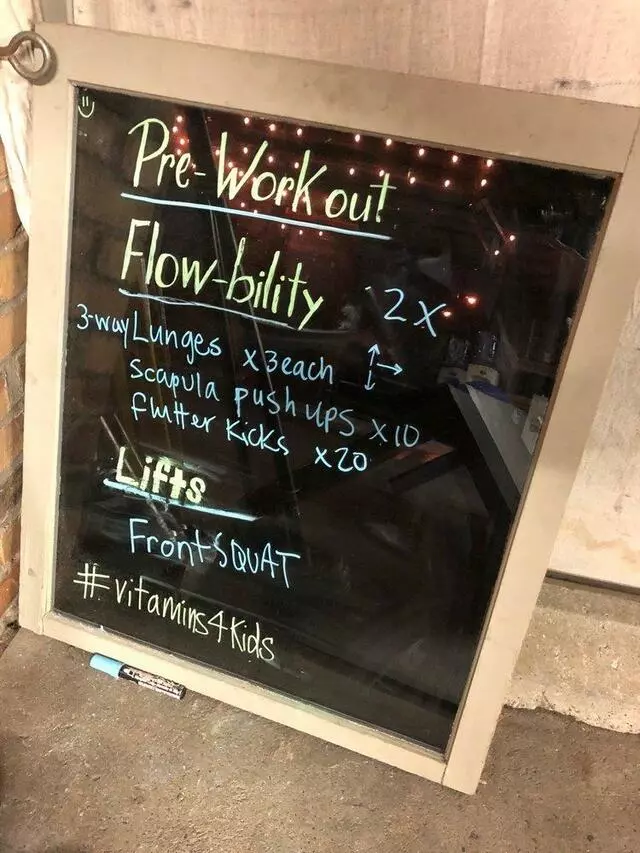 Pre-Workout
Flow-bility 2X
3-way Lunges x3 each
Scapula push ups x10
flutter kicks x20
Lifts
Front SQUAT
#vitamins4kids